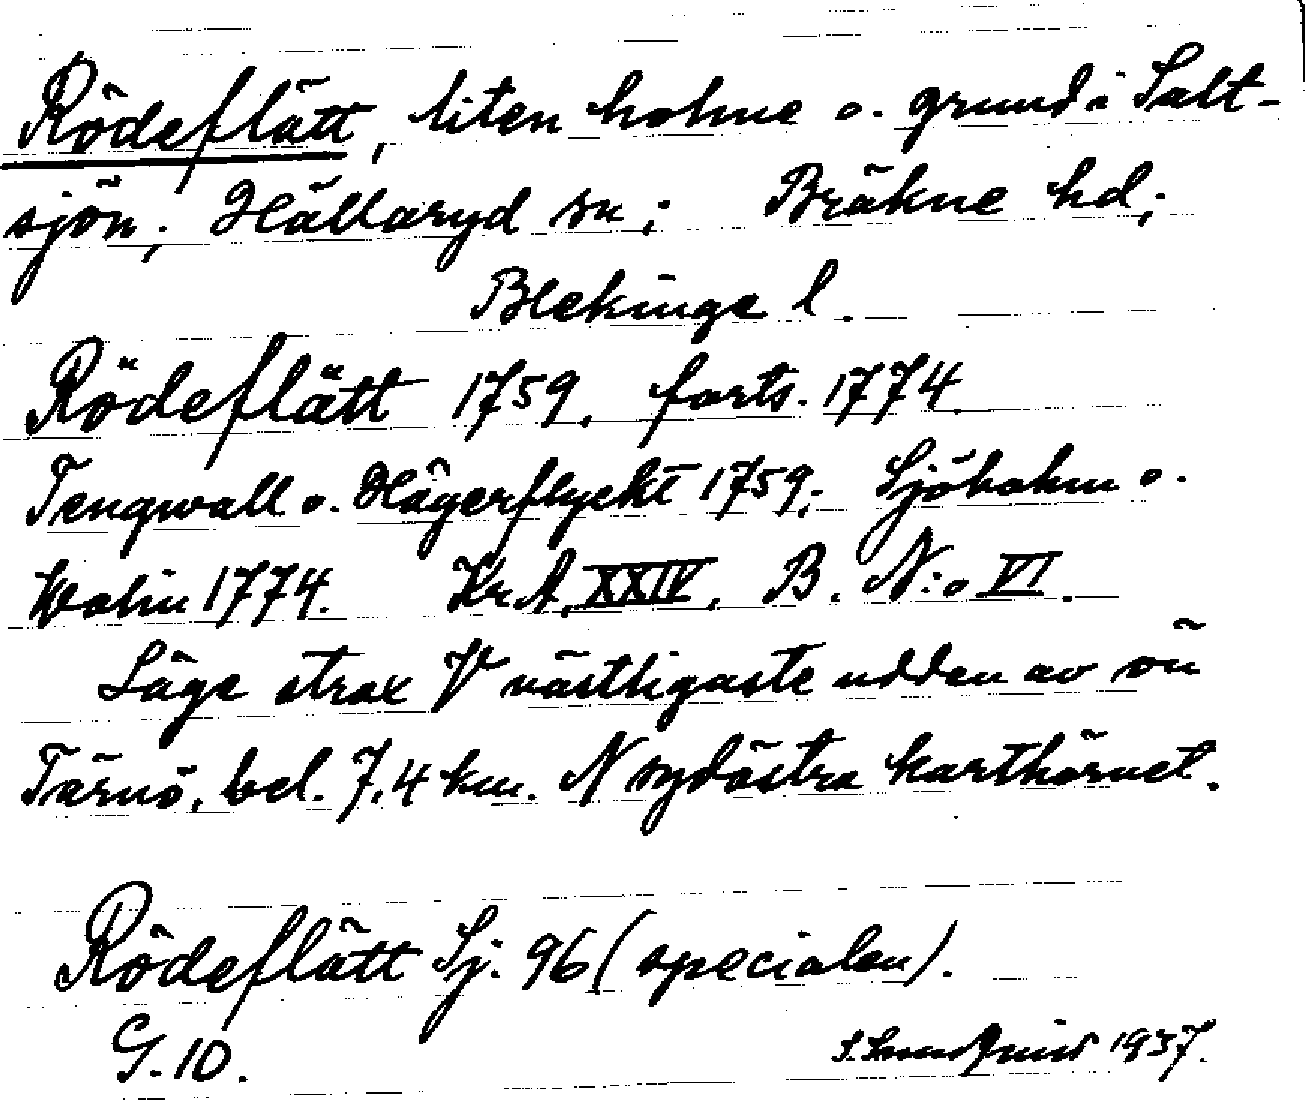 Rödeflätt, liten holme o. grund i Salt-
sjön; Hällaryd sn; Bräkne hd;
Blekinge l.
Rödeflätt 1759, forts. 1774
Tengwall o. Hägerflyckt 1759; Sjöholm o.
Wolin 1774. Kr A, XXIV, B. N:o VI.
Läge strax V västligaste udden av ön
Tärnö, bel. 7,4 km. N sydöstra karthörnet.
Rödeflätt Sj. 96 (specialen).
G. 10.
1937.